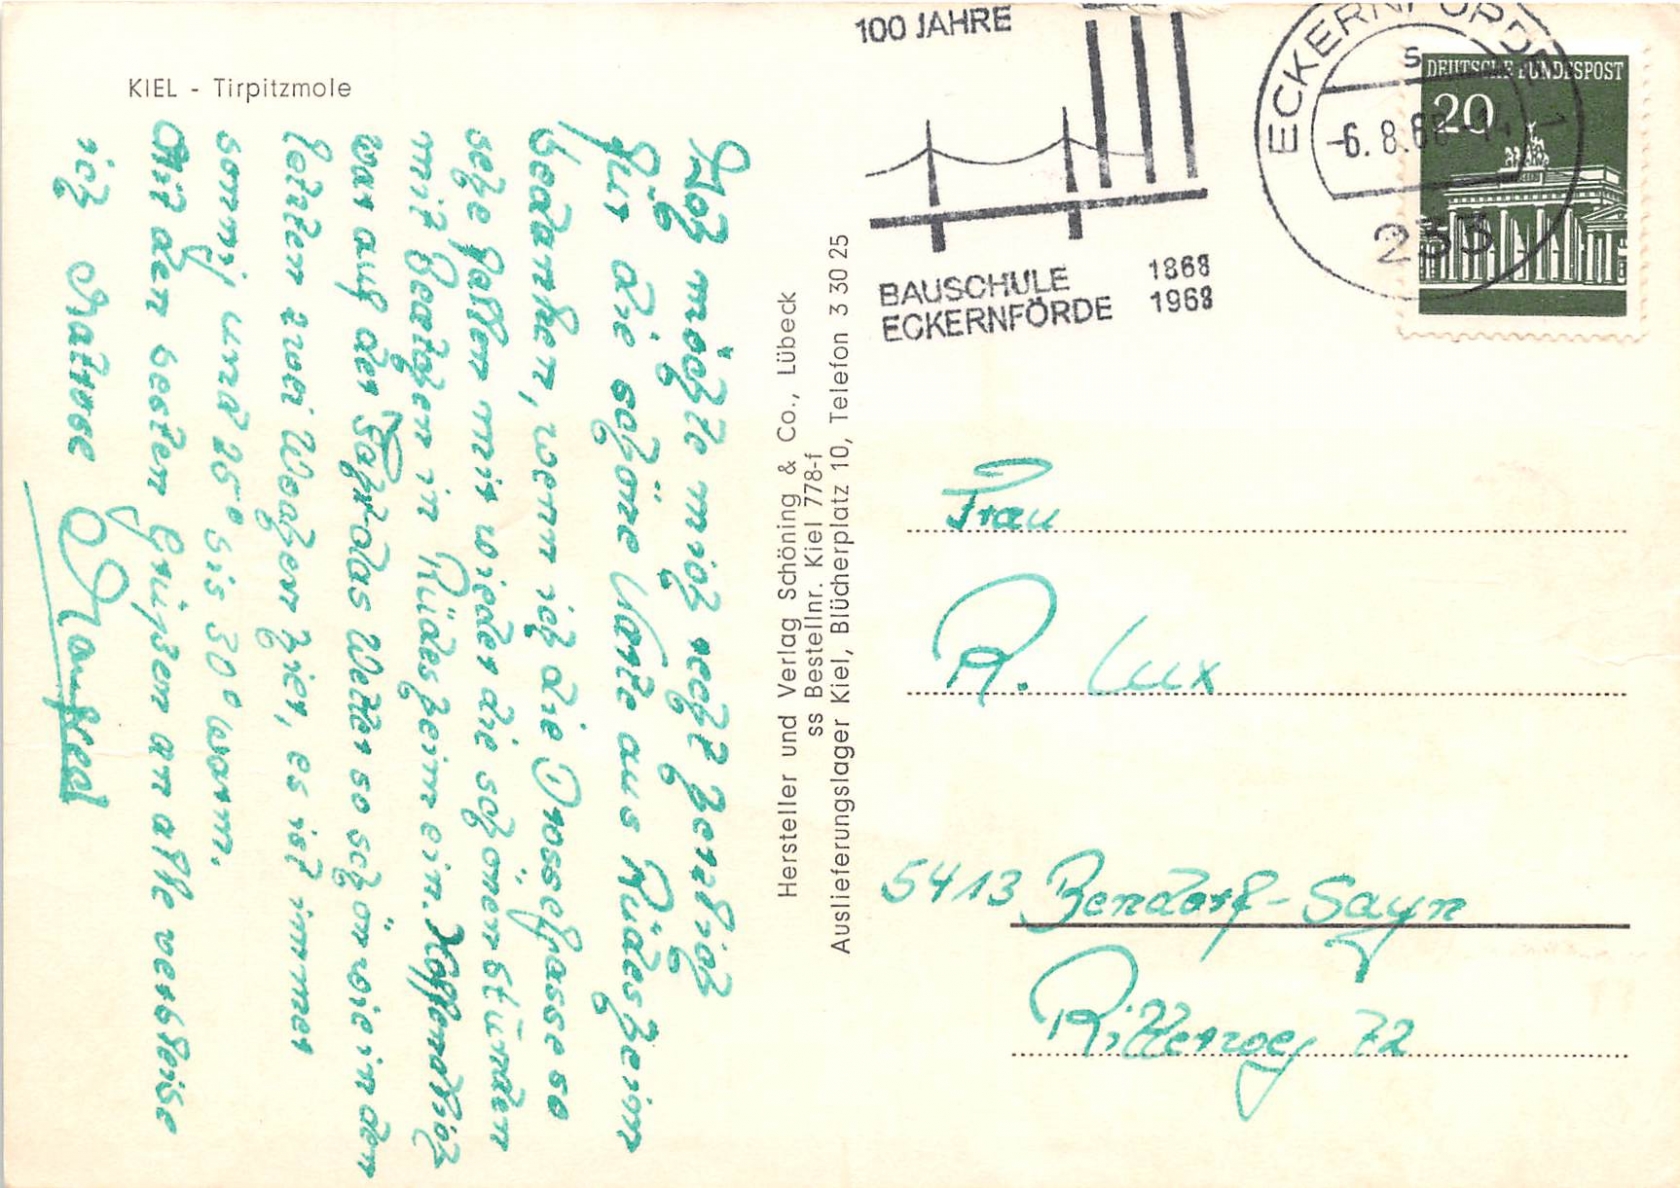 KIEL - Tirpitzmole
Ich möchte mich recht herzlich
für die schöne Karte aus Rüdesheim
bedanken, wenn ich die Drosselgasse so
sehe fallen mir wieder die schönen Stunden
mit Beatchen in Rüdesheim ein. Hoffendlich
war auf der Fahrt das Wetter so schön wie in den
letzten zwei Wochen hier, es ist immer
sonnig und 25° bis 30° warm.
Mit den besten Grüßen an alle verbleibe
ich Matrose Manfred
Hersteller und Verlag Schöning & Co., Lübeck
ss Bestellnr. Kiel 778-f
Auslieferungslager Kiel, Blücherplatz 10, Telefon 3 30 25
100 JAHRE
BAUSCHULE 1868
ECKERNFÖRDE 1968
ECKERNFÖRDE 1
s
-6.8.68-14
233
DEUTSCHE BUNDESPOST
20
Frau
R. Lux
5413 Bendorf-Sayn
Ritterweg 72